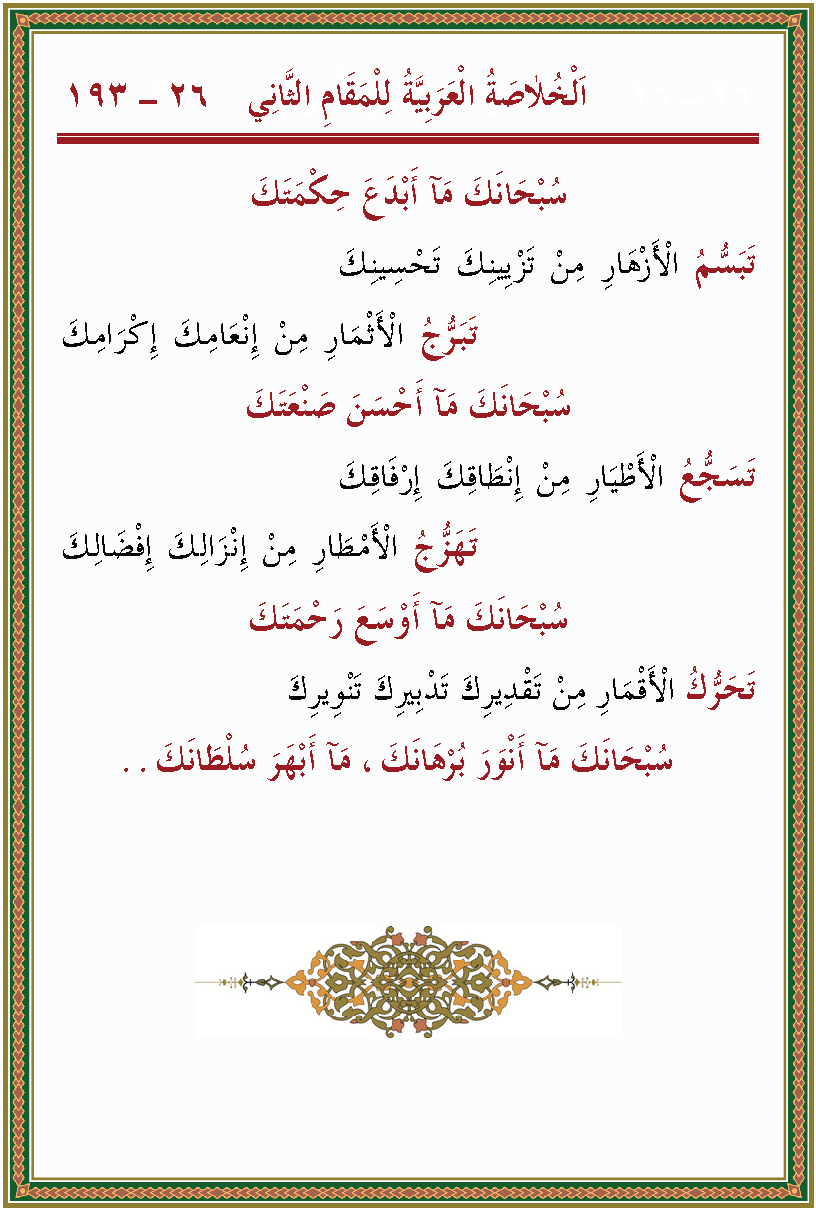 اَلْخُلَاصَةُ الْعَرَبِيَّةُ لِلْمَقَامِ الثَّانِي ٢٦ – ١٩٣
سُبْحَانَكَ مَآ أَبْدَعَ حِكْمَتَكَ
تَبَسُّمُ الْأَزْهَارِ مِنْ تَزْيِينِكَ تَحْسِينِكَ
تَبَرُّجُ الْأَثْمَارِ مِنْ إِنْعَامِكَ إِكْرَامِكَ
سُبْحَانَكَ مَآ أَحْسَنَ صَنْعَتَكَ
تَسَجُّعُ الْأَطْيَارِ مِنْ إِنْطَاقِكَ إِرْفَاقِكَ
تَهَزُّجُ الْأَمْطَارِ مِنْ إِنْزَالِكَ إِفْضَالِكَ
سُبْحَانَكَ مَآ أَوْسَعَ رَحْمَتَكَ
تَحَرُّكُ الْأَقْمَارِ مِنْ تَقْدِيرِكَ تَدْبِيرِكَ تَنْوِيرِكَ
سُبْحَانَكَ مَآ أَنْوَرَ بُرْهَانَكَ ، مَآ أَبْهَرَ سُلْطَانَكَ . .